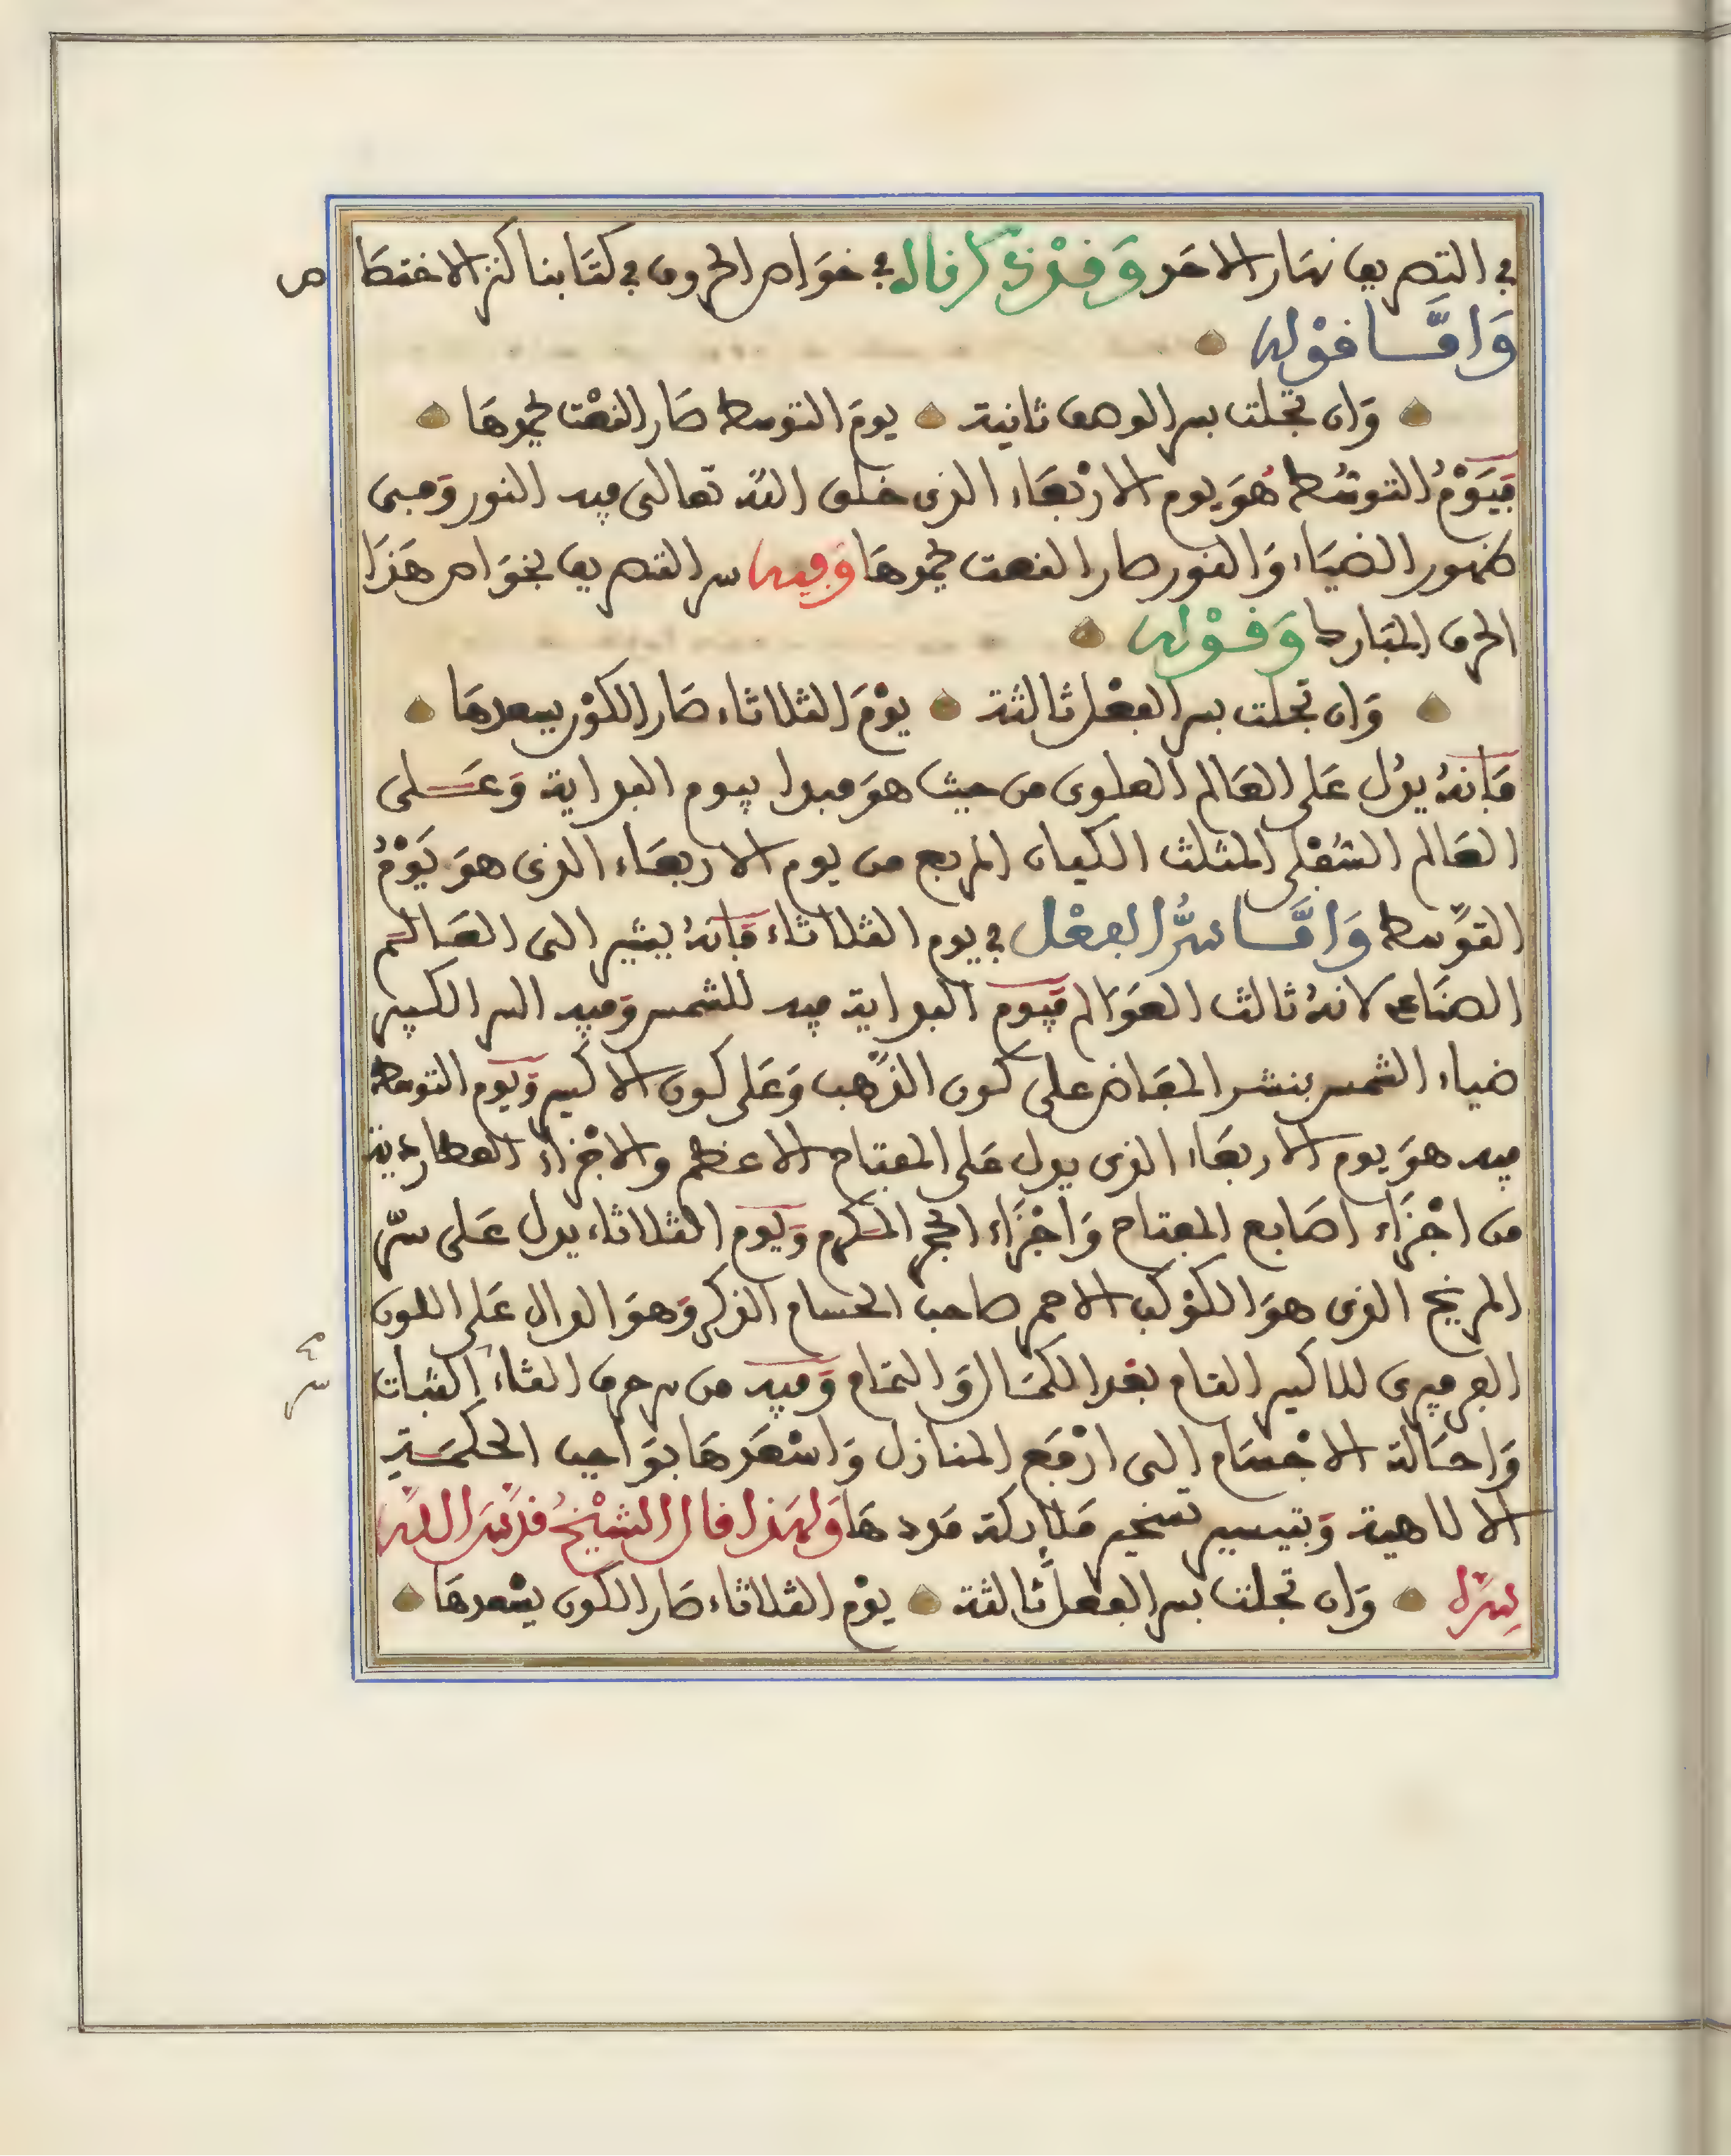 في التصريف نهار الاحد وَقَدْ ذكرنا له في خوَاص الحروف في كتَابنا كنز الاختصَا ص
وَامَّا قوْله
وَان تجلت بسر الوصف ثانية يومَ التوسط صَار النعْت يحمدهَا
فَيَوْمُ التوسُّط هُوَ يوم الارْبعَاء الذى خلق اللّه تعالى فيه النور وَمبنى
ظهور الضيَاء وَالنور صار النعت يحمدهَا وَفيه سر التصريف بخوَاص هَذَا
الحرف المبَارك وَقَوْله
وَان تجلت بسر الفعْل ثالثة يوْمَ الثلاثاء صَار الكوْن يسعدهَا
فَانهُ يدُل عَلى العَالم العلوى من حيث هوَ مبدا بيوم البداية وَعَلى
العَالم السُفْلى المثلث الكيان المربع من يوم الاربعَاء الذى هوَ يَوْمُ
التوَسط وَامَّا سرُّ الفعْل في يوم الثلاثاء فَانهُ يشير الى العَالم
الصنَاعى لانهُ ثالث العوَالم فيوم البداية فيه للشمس وَفيه السر الكبير
ضياء الشمس بنشر المفاض على كون الذَّهب وَعَلى كون الاكسير وَيوم التوسط
فيه هوَ يوم الاربعَاء الذى يدل عَلى المفتاح الاعظم والاجْزاء العطاردية
من اجْزَاء اصَابع المفتاح وَاجْزَاء الحجر المكرم وَيوم الثلاثاء يدل عَلى سرّ
المريخ الذى هوَ الكوْكب الاحمر صاحب الحسام الذكر وَهوَ الدال عَلى اللون
الفرفيرى للاكسير التام بعْد الكمَال وَالتمَام وَفيه من سر حرف الثاء الثبات
وَاحَالة الاجْسَام الى ارْفَع المنازل وَاسْعَدهَا بوَاجب الحكمَة
الالاهية وَبتيسير تسخير مَلائكة مَددهَا وَلهَذا قال الشيْخُ قدَّسَ اللّه
سِرَّه وَان تجلت بسر الفعل ثالثة يوْم الثلاثاء صَار الكون يسْعدهَا